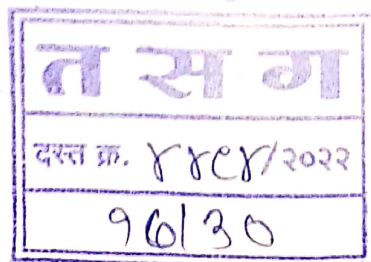 त स ग
दस्त क्र. ४४९४/२०२२
१७/३०